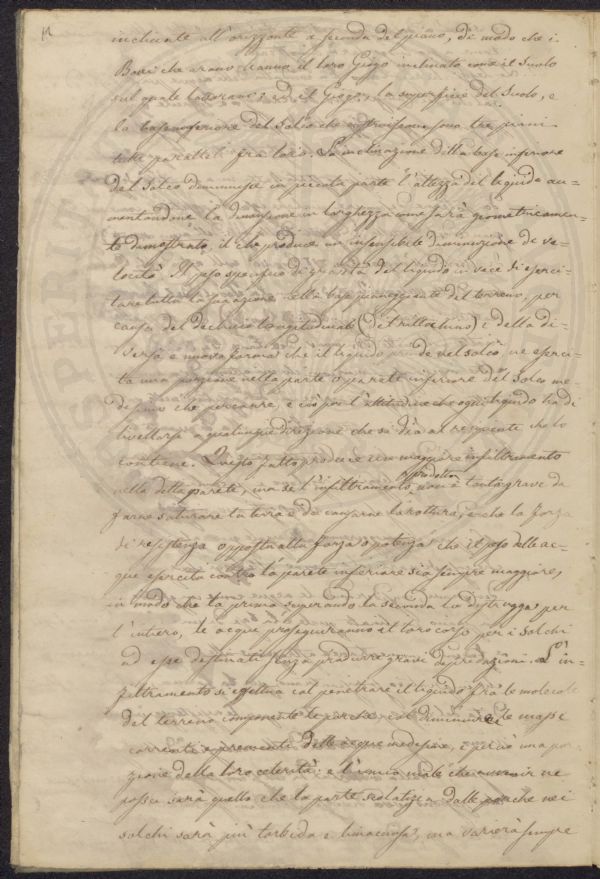 12
inclinate all'orizzonte a seconda del piano, di modo che i
Bovi che arano hanno il loro Giogo inclinato come il suolo
sul quale lavorano; ed il Giogo, la superficie del Suolo, e
la base inferiore del Solco che sono tre piani
tutti paralleli fra loro. La inclinazione della base inferiore
del solco diminuisce in piccola parte l'altezza del liquido au=
mentandone la dimensione in larghezza come sarà geometricamen=
te dimostrato, il che produce un insensibile diminuzione di ve=
locità. Il peso specifico di gravità del liquido in vece di eserci=
tare tutta la sua azione nella base del terreno, per
causa del declivio longitudinale ( ) e della di=
versa e nuova forma che il liquido prende nel solco, ne eserci=
ta una porzione nella parte o parete inferiore del solco me=
desimo che percorre, e ciò per l'attitudine che ogni liquido ha di
livellarsi a qualunque direzione che si dia al recipiente che lo
contiene. Questo fatto produce un maggiore infiltramento
nella detta parete, ma se l'infiltramento prodotto non è tanto grave da
farne saturare la terra e da causarne la rottura, e che la forza
di resistenza opposta alla forza o potenza che il peso delle ac=
que esercita contro la parete inferiore sia sempre maggiore,
in modo che la prima superando la seconda la distrugga per
l'intiero, le acque proseguiranno il loro corso per i solchi
ad esse destinati senza produrre gravi depredazioni. L'in=
filtramento si effettua col penetrare il liquido fra le molecole
del terreno componente le porche, col diminuire le masse
correnti e prementi delle acque medesime, e perciò una por=
zione della loro celerità: e l'unico male che avvenir ne
possa sarà quello che la parte scolatizia dalle porche nei
solchi sarà più torbida e limacciosa, ma varierà sempre